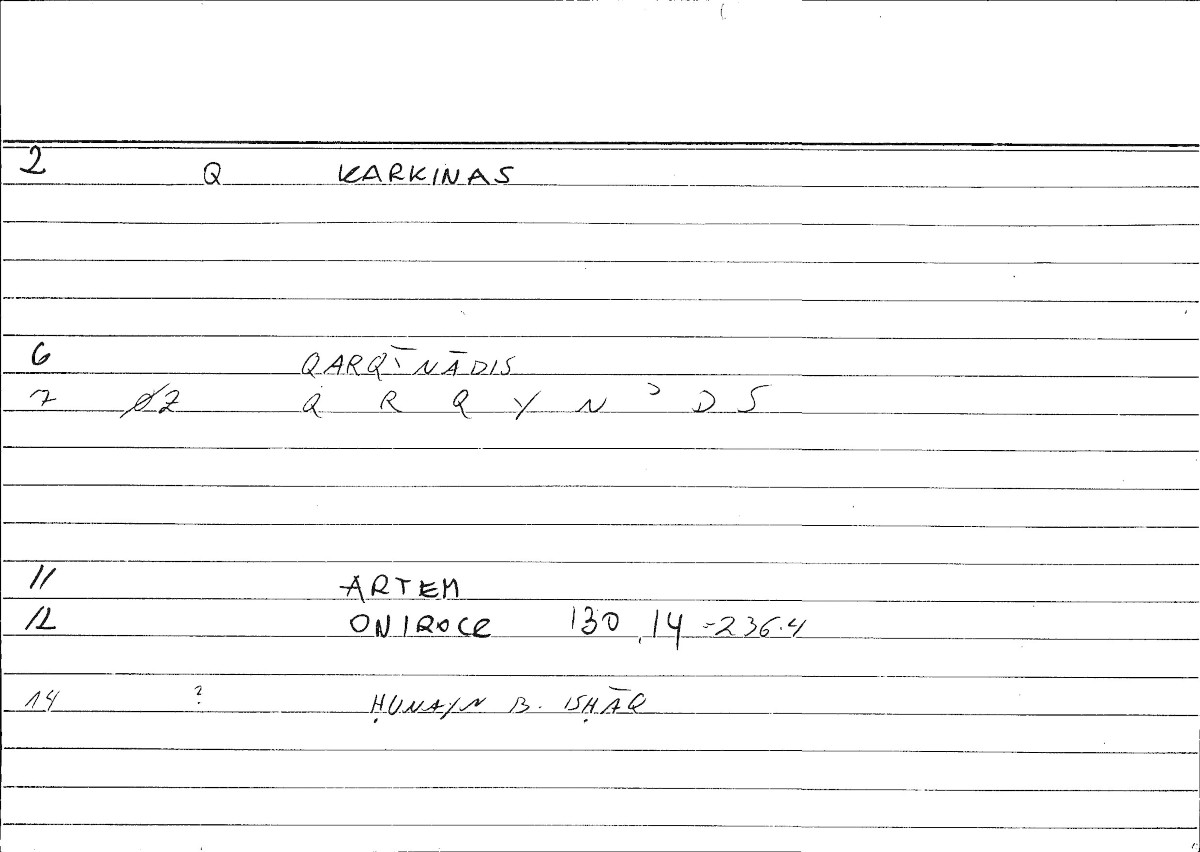 2 Q KARKINAS
6 QARQĪNĀDIS
7 Z Q R Q Y N ʾ D S
11 ARTEM
12 ONIROCR 130,14-236.4
14 ? ḤUNAYN B. ISḤĀQ